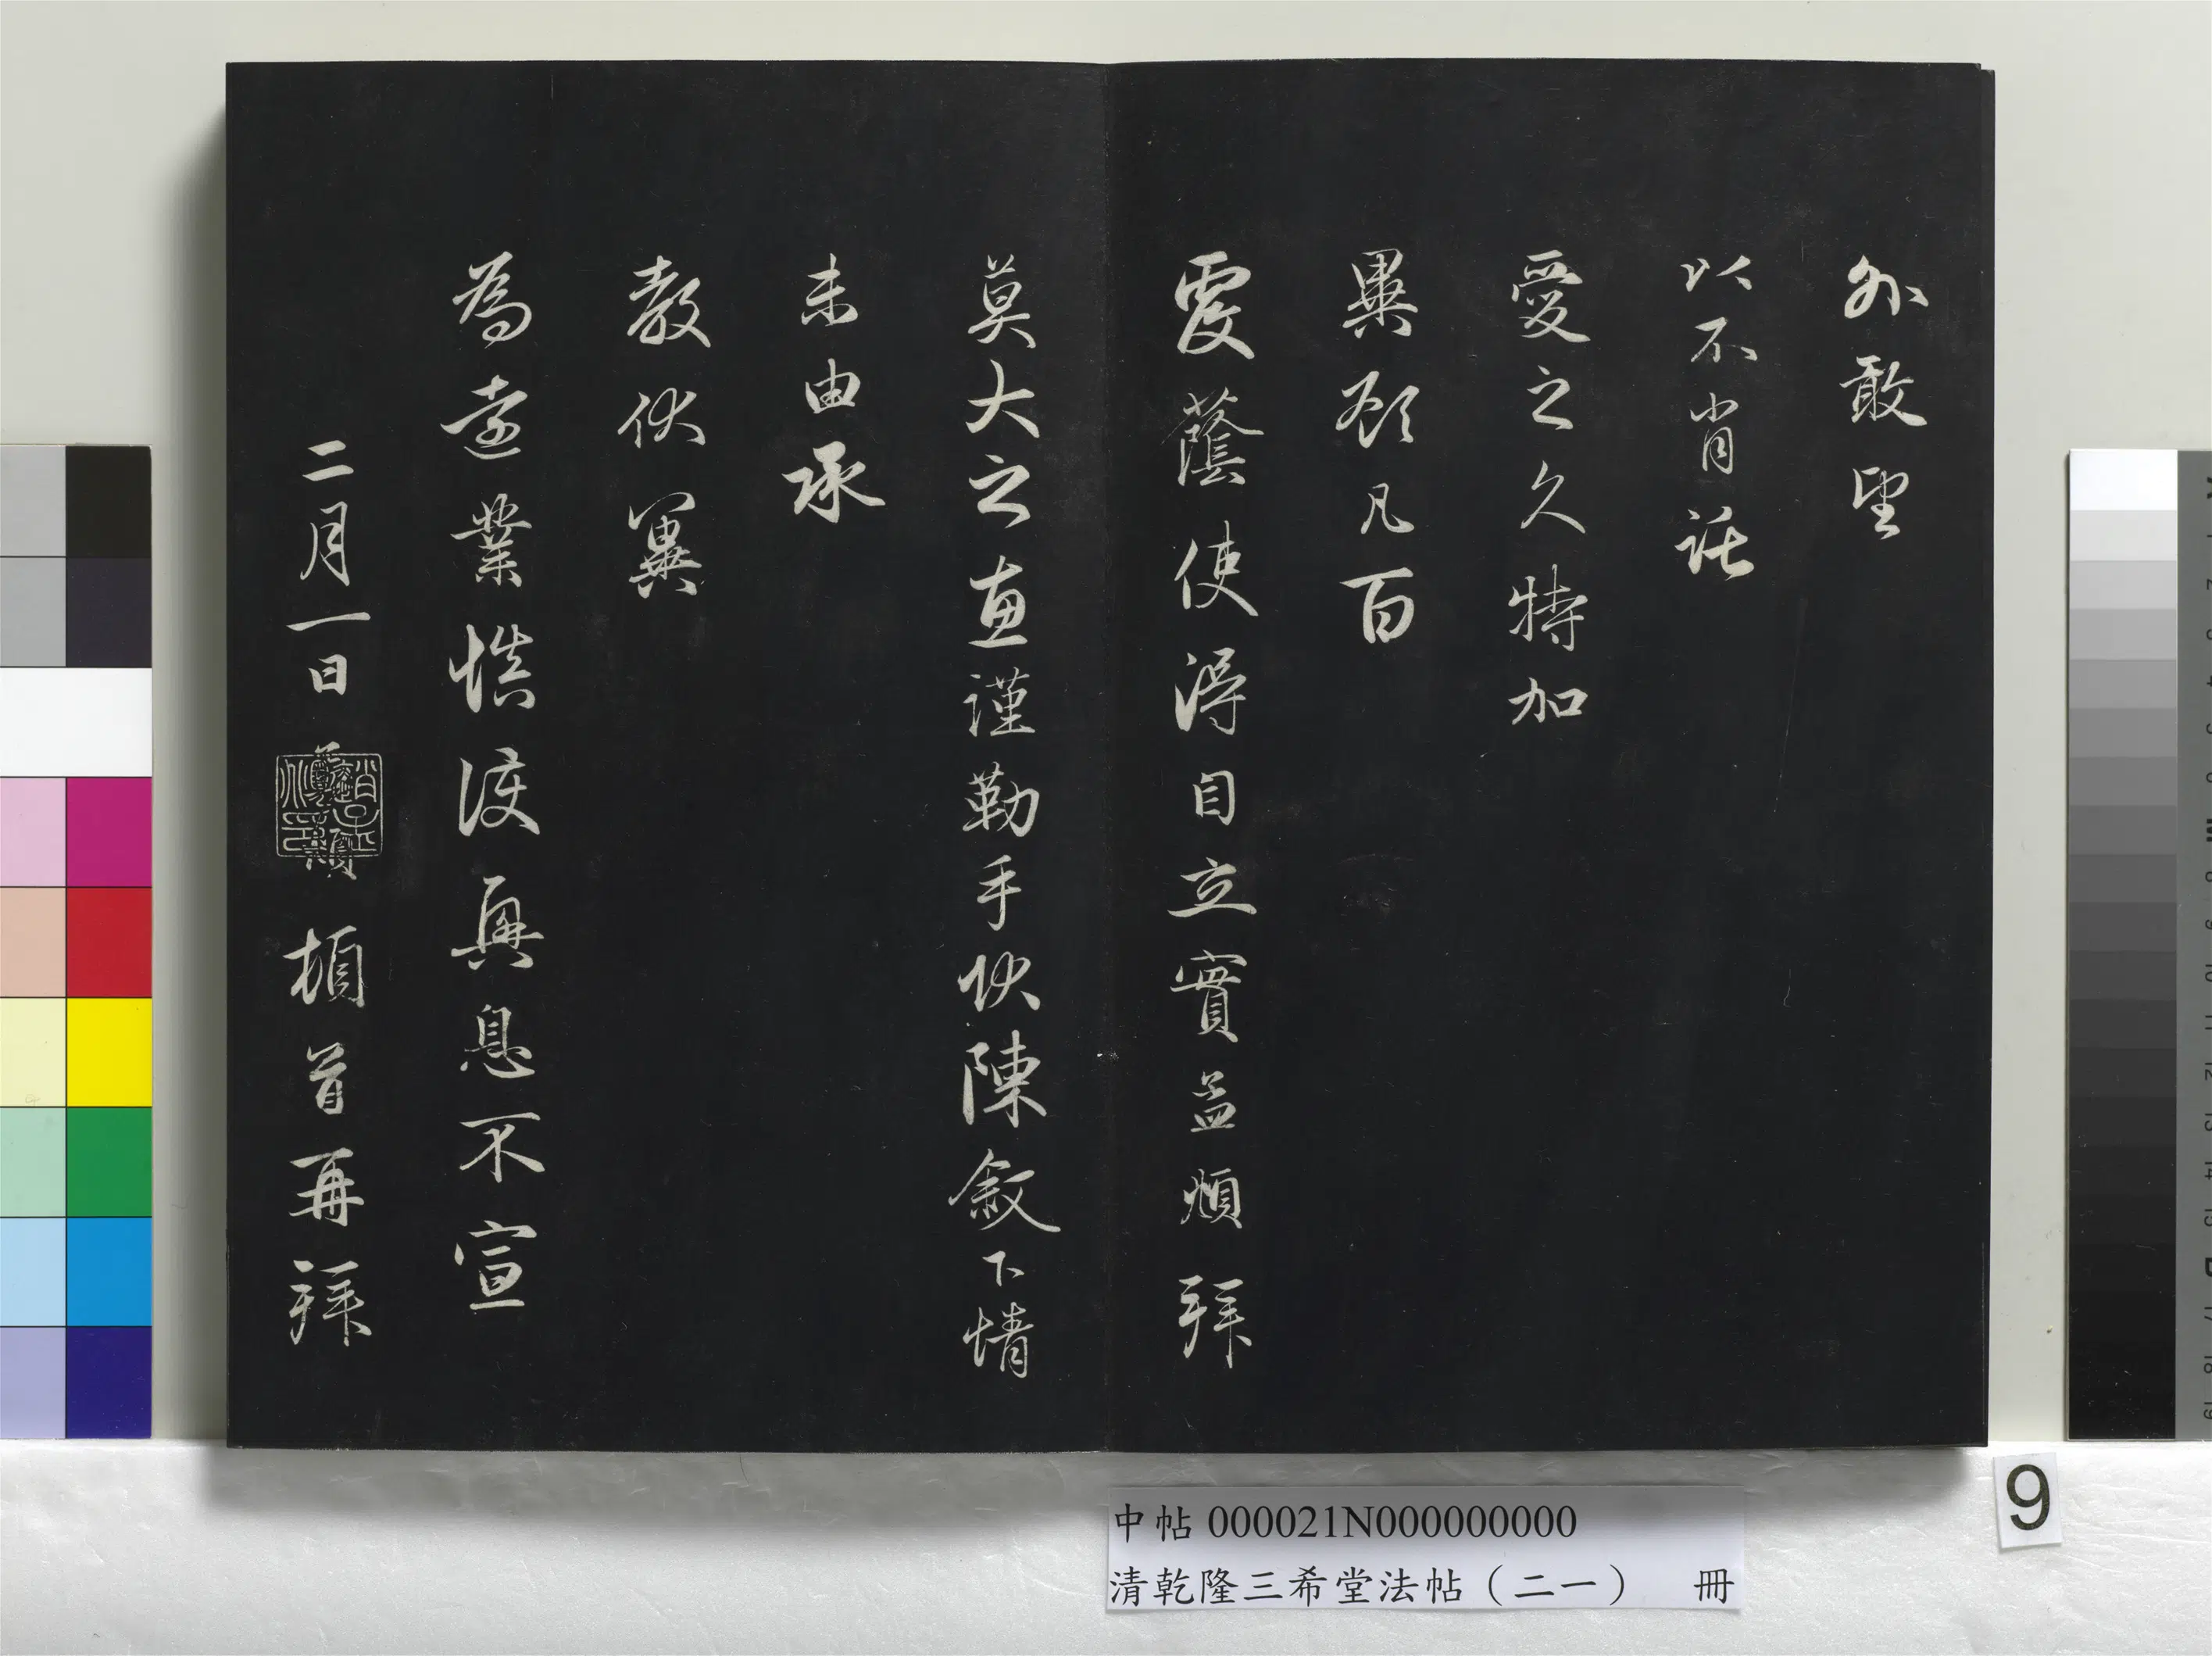 外敢望
以不肖託
愛之久特加
異顧凡百
覆蔭使得自立實孟頫拜
莫大之惠謹勒手狀陳敘下情
未由承
教伏冀
為遠業慎護興息不宣
二月一日孟頫頓首再拜
中帖 000021N000000000
清乾隆三希堂法帖（二一） 冊
9